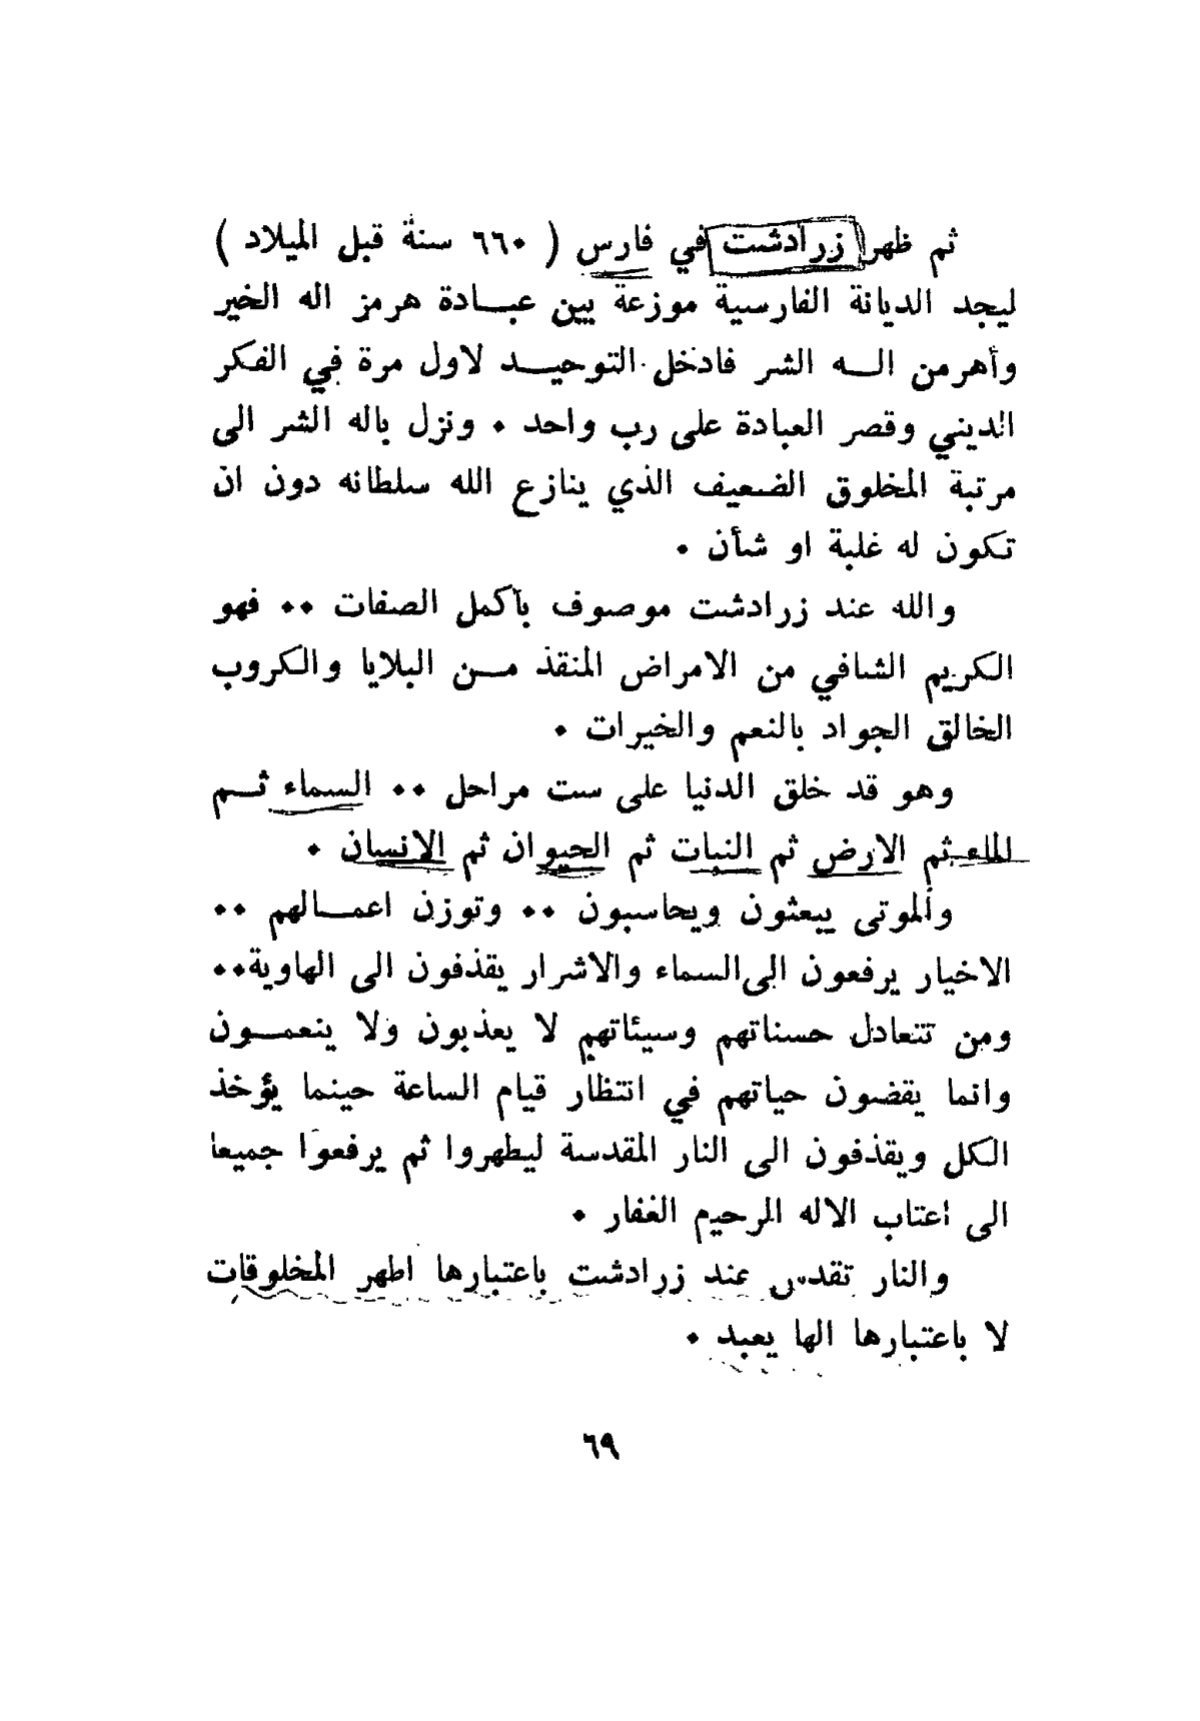 ثم ظهر زرادشت في فارس ( ٦٦٠ سنة قبل الميلاد )
ليجد الديانة الفارسية موزعة بين عبـــادة هرمز اله الخير
وأهرمن الـــه الشر فادخل التوحيـــد لاول مرة في الفكر
الديني وقصر العبادة على رب واحد ٠ ونزل باله الشر الى
مرتبة المخلوق الضعيف الذي ينازع الله سلطانه دون ان
تكون له غلبة او شأن ٠
والله عند زرادشت موصوف بأكمل الصفات ٠٠ فهو
الكريم الشافي من الامراض المنقذ مـــن البلايا والكروب
الخالق الجواد بالنعم والخيرات ٠
وهو قد خلق الدنيا على ست مراحل ٠٠ السماء ثـــم
الماء ثم الارض ثم النبات ثم الحيوان ثم الانسان ٠
والموتى يبعثون ويحاسبون ٠٠ وتوزن اعمـــالهم ٠٠
الاخيار يرفعون الى السماء والاشرار يقذفون الى الهاوية٠٠
ومن تتعادل حسناتهم وسيئاتهم لا يعذبون ولا ينعمـــون
وانما يقضون حياتهم في انتظار قيام الساعة حينما يؤخذ
الكل ويقذفون الى النار المقدسة ليطهروا ثم يرفعوا جميعا
الى اعتاب الاله الرحيم الغفار ٠
والنار تقدس عند زرادشت باعتبارها اطهر المخلوقات
لا باعتبارها الها يعبد ٠
٦٩